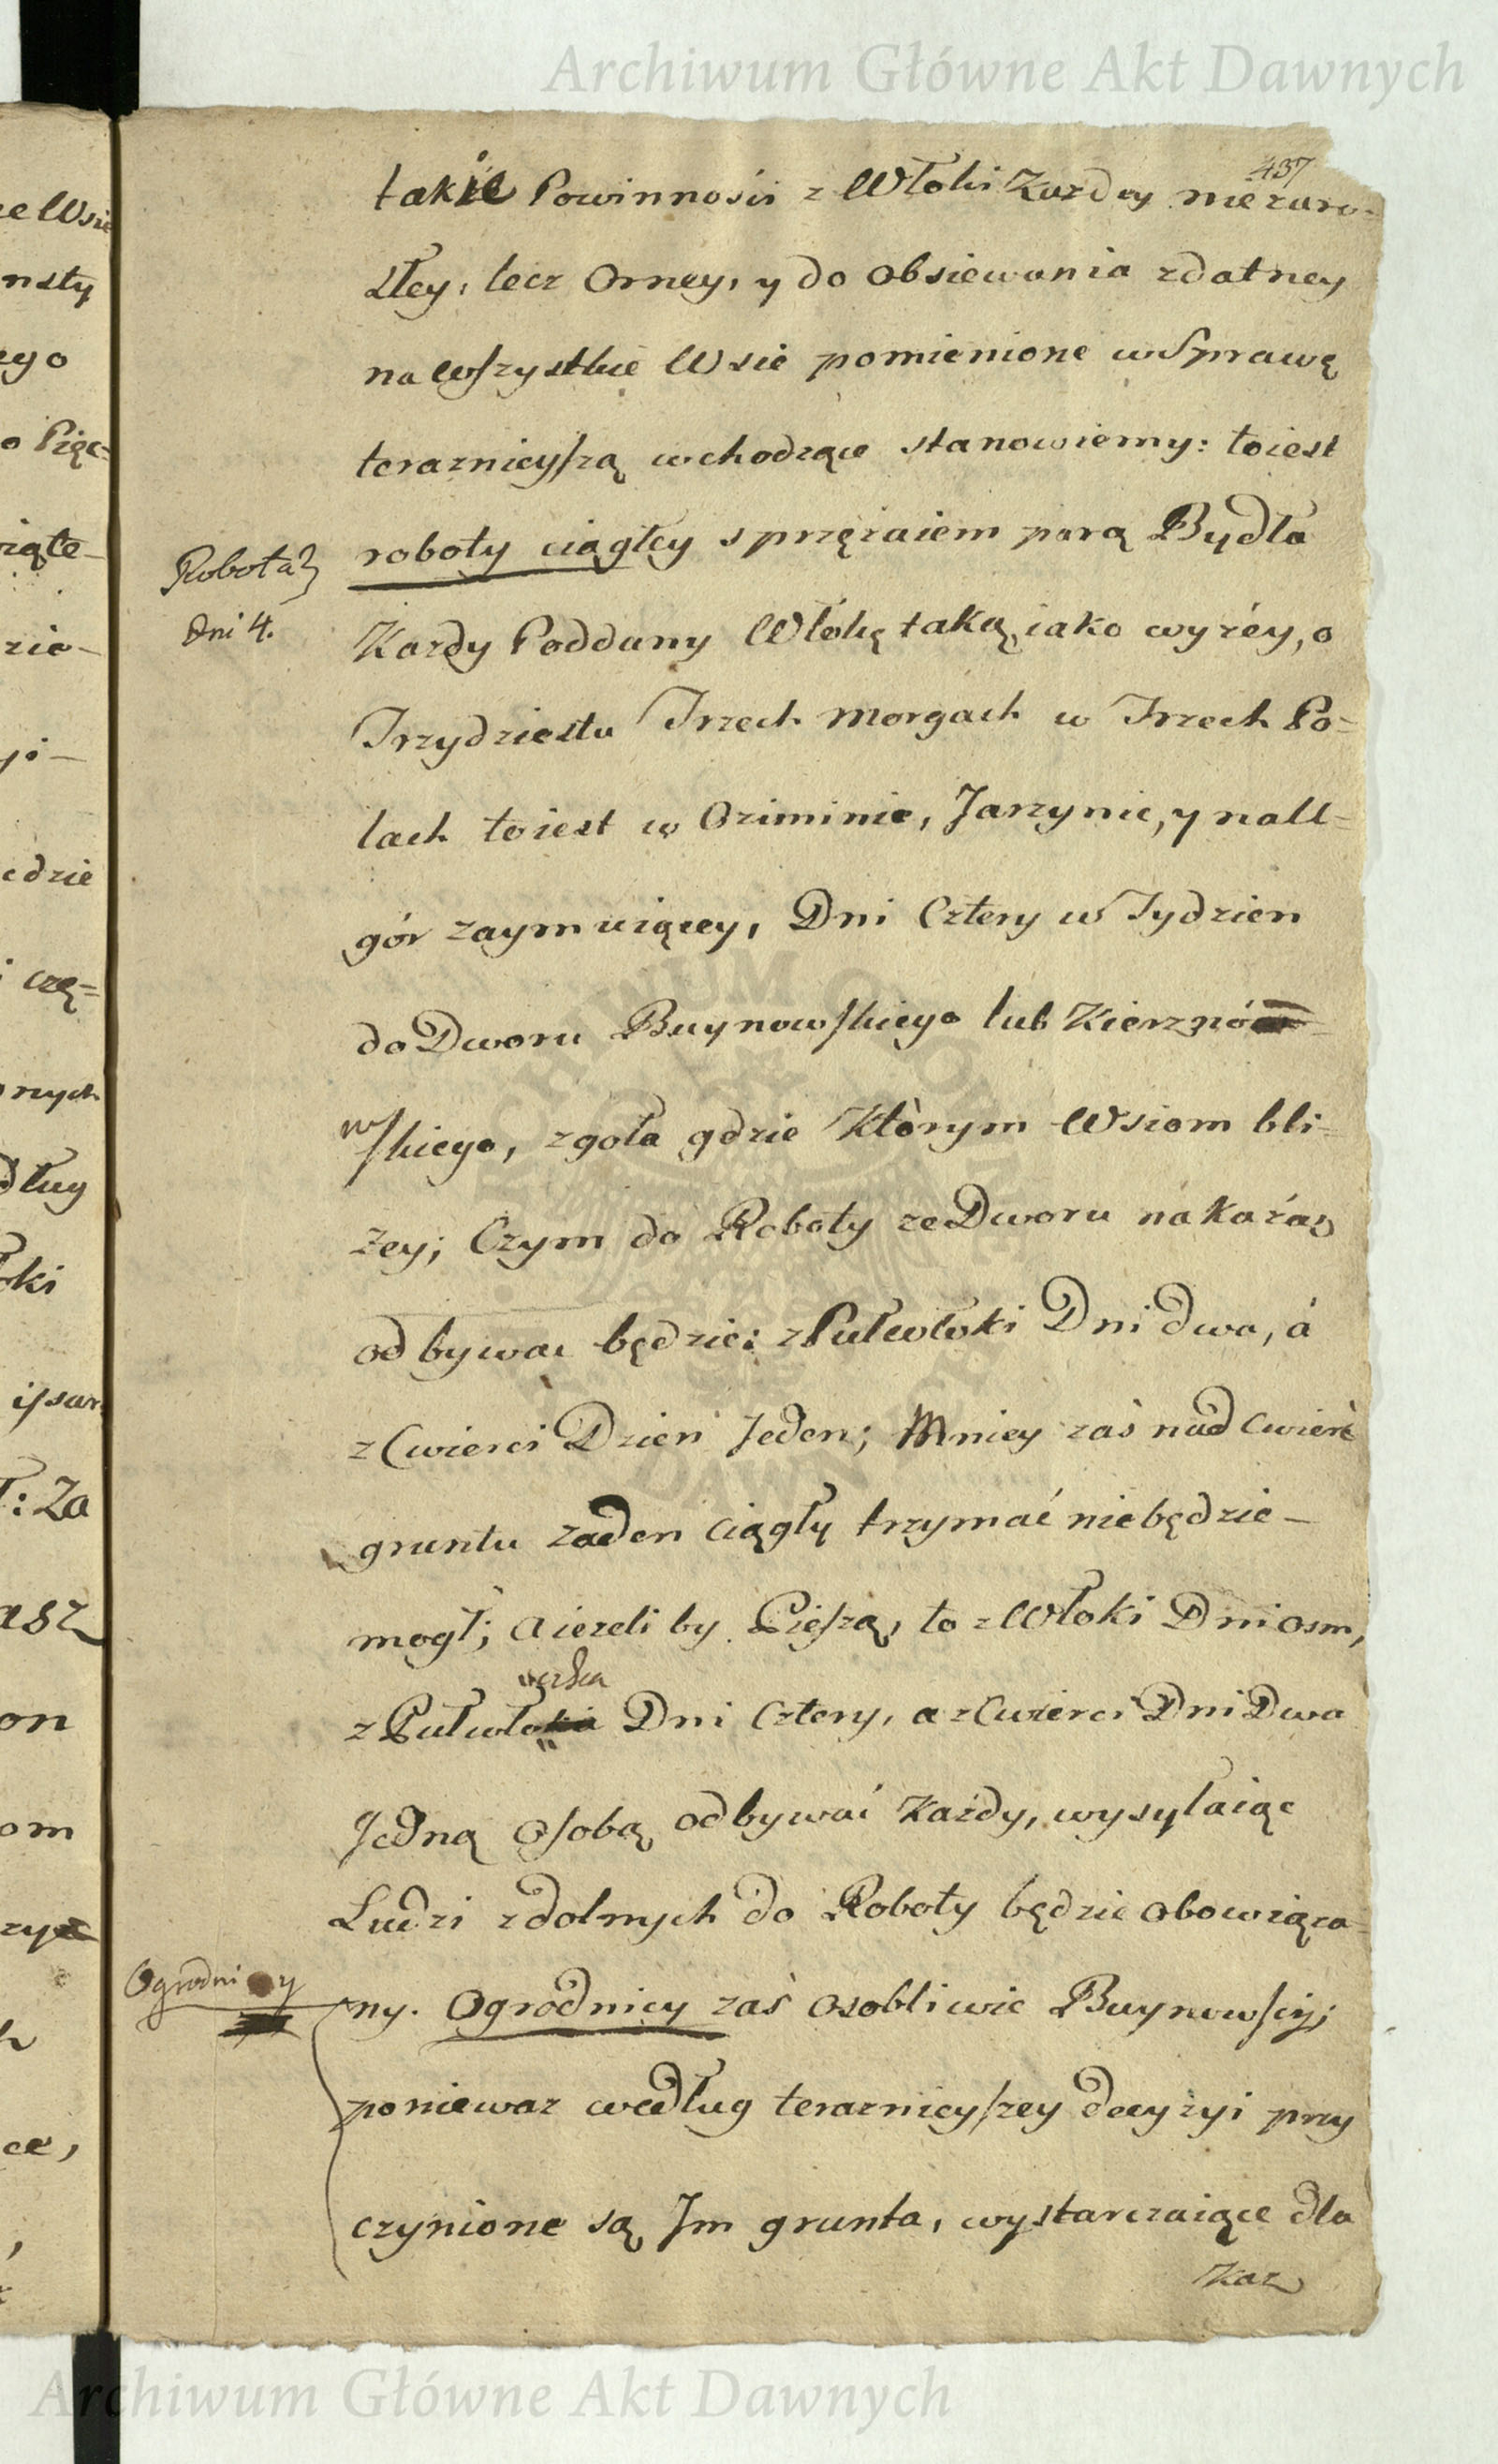 Archiwum Główne Akt Dawnych
437
takie Powinności z Włoki Kazdey niezaro-
słey, lecz Orney, y do obsiewania zdatney
na wszystkie Wsie pomienione w Sprawę
teraznieyszą wchodzące stanowiemy: toiest
roboty ciągłey sprzęzaiem parą Bydła
Robota
dni 4.
Kazdy Poddany Włokę taką, iako wyżey, o
Trzydziestu Trzech Morgach w Trzech Po-
lach toiest w Oziminie, Jarzynie, y na U-
gór zaymuiącey, Dni Cztery w Tydzien
do Dworu Buynowskiego lub Kierznó
wskiego, zgoła gdzie Którym Wsiom bli-
zey; Czym do Roboty ze Dworu nakażą,
odbywac będzie: z Pułwłoki Dni dwa, á
z Cwierci Dzien Jeden; Mniey zaś nad Cwierć
gruntu zaden ciągły trzymać niebędzie
mogł; a iezeli by Pieszą, to z Włoki Dni osm,
z Pułwłoczka Dni Cztery, a z Cwierci Dni Dwa
Jedną osobą odbywać Każdy, wysyłaiąc
Ludzi zdolnych do Roboty będzie obowiąza-
Ogrodnicy
ny. Ogrodnicy zaś osobliwie Buynowscy;
poniewaz według teraznieyszey decyzyi przy
czynione są Im grunta, wystarczaiące dla
Kaz
Archiwum Główne Akt Dawnych